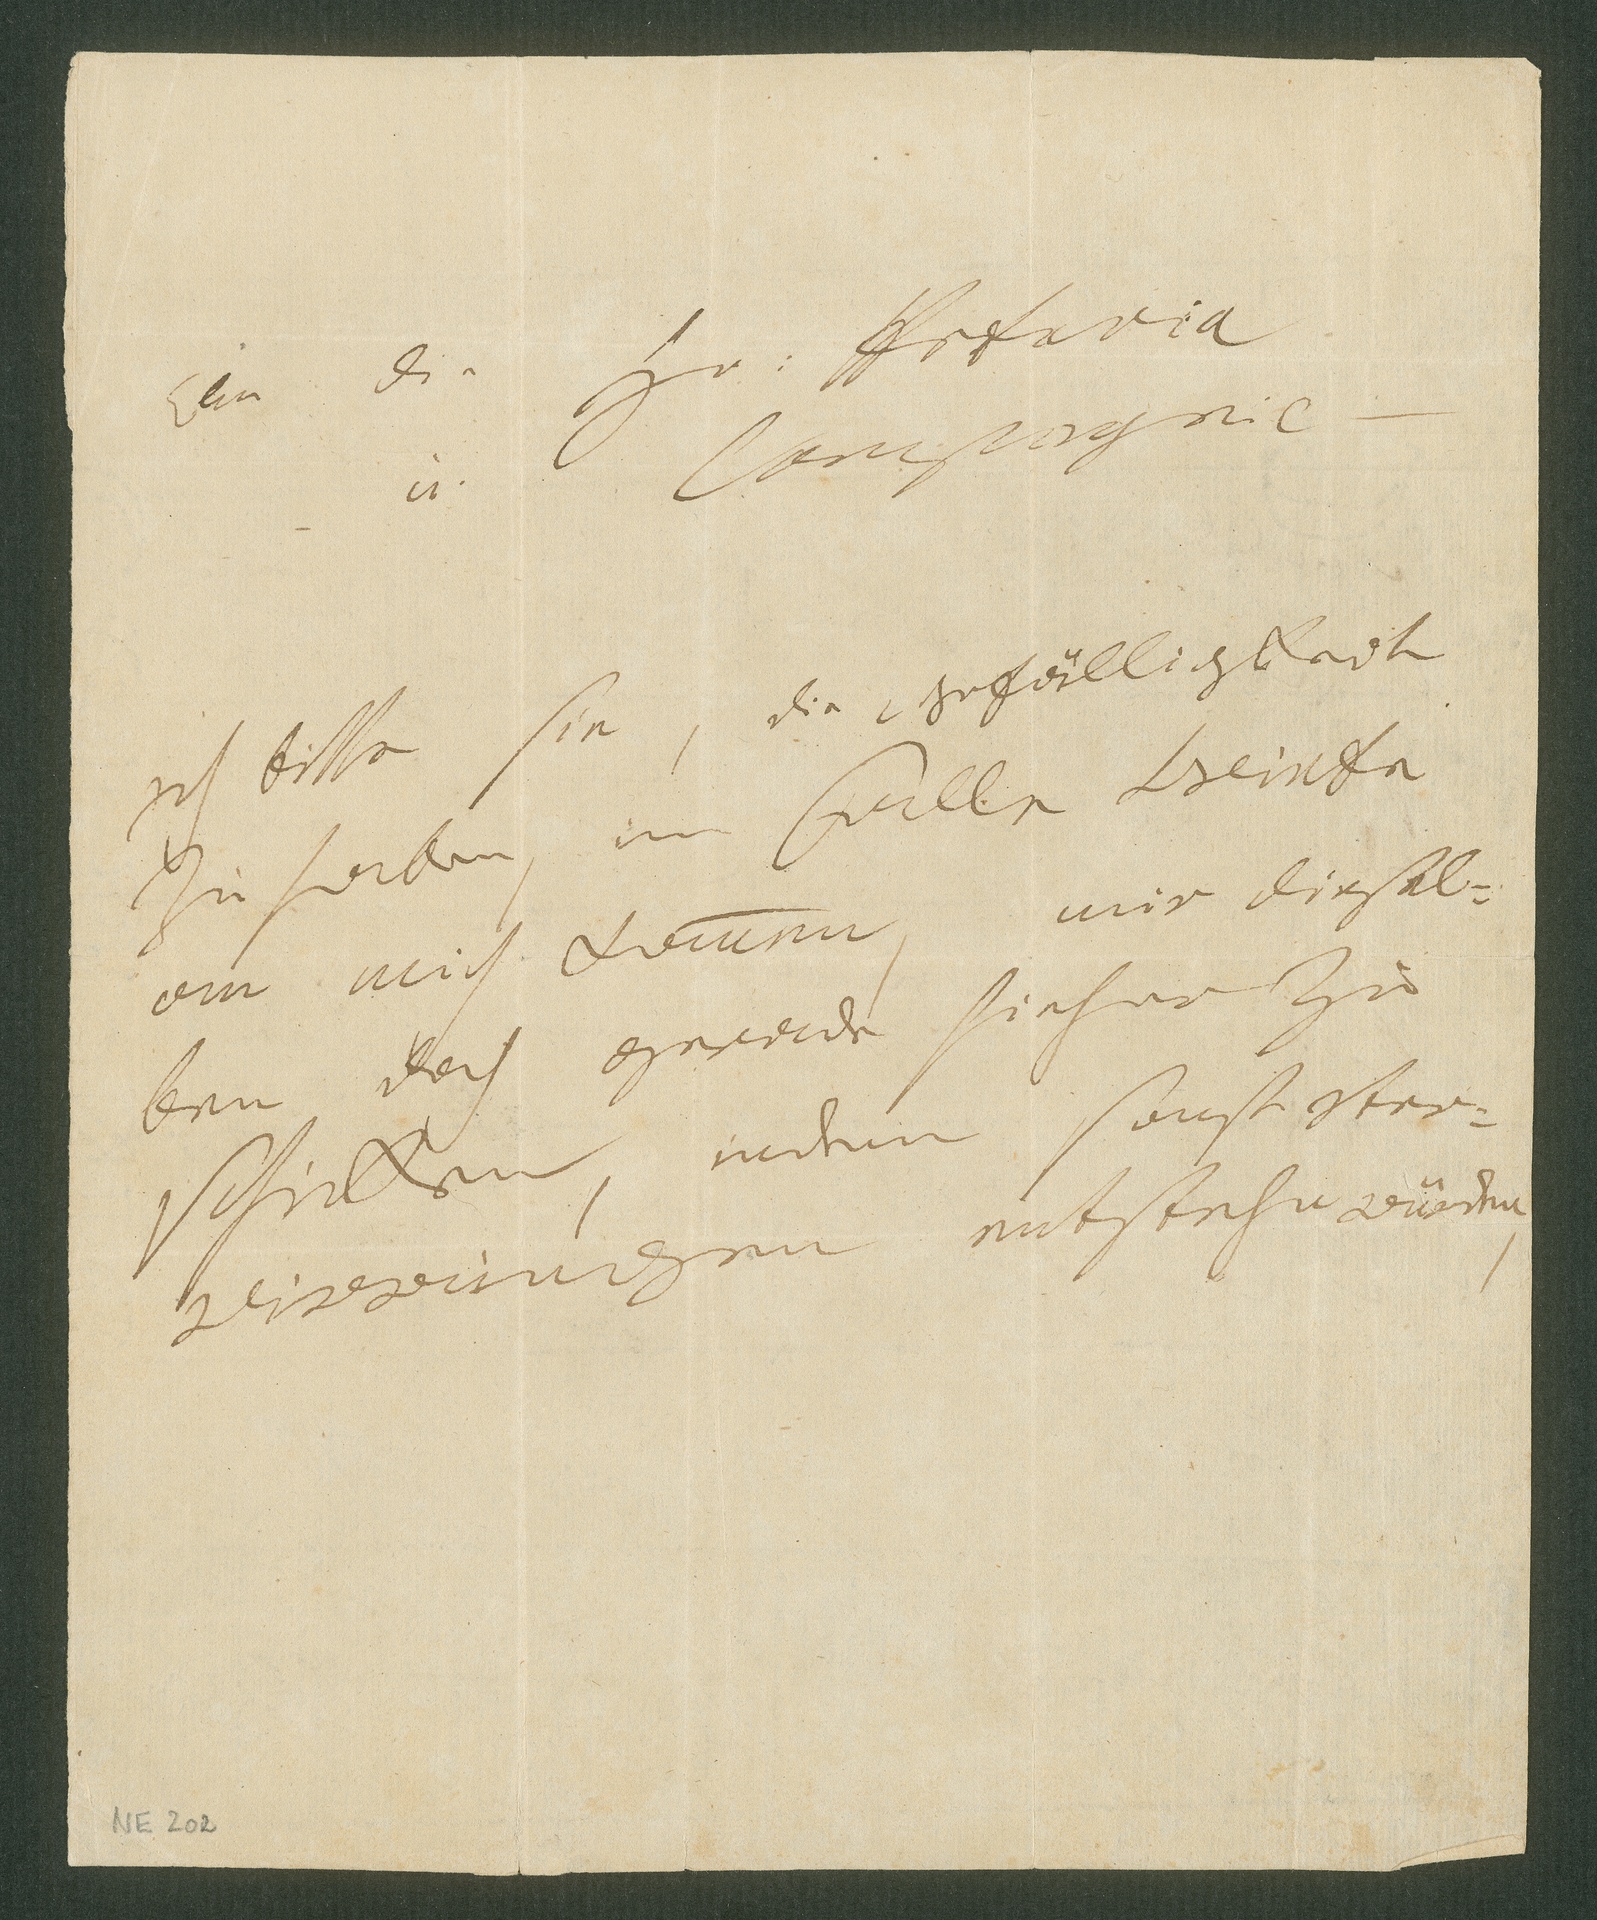 An die Hr: Artaria
u. Compagnie —
ich bitte sie, die gefälligkeit
zu haben, im Falle briefe
an mich kommen, mir diesel=
ben doch gerade hieher zu
schicken, indem sonst Ver=
wirrungen entstehn würden,
NE 202